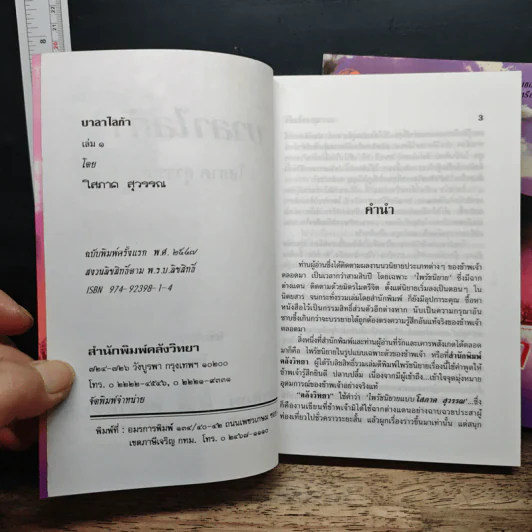 บาลาไลก้า
เล่ม ๑
โดย
โสภาค สุวรรณ
ฉบับพิมพ์ครั้งแรก พ.ศ. ๒๕๔๗
สงวนลิขสิทธิ์ตาม พ.ร.บ.ลิขสิทธิ์
ISBN 974-92398-1-4
สำนักพิมพ์คลังวิทยา
๗๒๔-๗๒๖ วังบูรพา กรุงเทพฯ ๑๐๒๐๐
โทร. ๐ ๒๒๒๒-๔๕๔๖, ๐ ๒๒๒๑-๙๓๓๑
จัดพิมพ์จำหน่าย
พิมพ์ที่ : อมรการพิมพ์ ๑๓๔/๔๐-๔๒ ถนนเพชรเกษม
เขตภาษีเจริญ กทม. โทร. ๐ ๒๔๖๘-๑๑๑๐
3
คำนำ
ท่านผู้อ่านซึ่งได้ติดตามผลงานนวนิยายประเภทต่างๆ ของข้าพเจ้า
ตลอดมา เป็นเวลากว่าสามสิบปี โดยเฉพาะ 'ไพรัชนิยาย' ซึ่งมีฉาก
ต่างแดน ติดตามด้วยมิตรไมตรีจิต ตั้งแต่นิยายเริ่มลงเป็นตอนๆ ใน
นิตยสาร จนกระทั่งรวมเล่มโดยสำนักพิมพ์ ก็ยังมีอุปการะคุณ ซื้อหา
หนังสือไว้เป็นกรรมสิทธิ์ส่วนตัวอีกต่างหาก นับเป็นความกรุณาอัน
ซาบซึ้งเกินกว่าจะบรรยายได้ถูกต้องตรงความรู้สึกอันแท้จริงของข้าพเจ้า
ตลอดมา
สิ่งหนึ่งที่สำนักพิมพ์และท่านผู้อ่านที่รักและเคารพสังเกตได้ตลอด
มาก็คือ ไพรัชนิยายในรูปแบบเฉพาะตัวของข้าพเจ้า หรือที่สำนักพิมพ์
คลังวิทยา ผู้ได้รับลิขสิทธิ์รวมเล่มตีพิมพ์ไพรัชนิยายเรื่องนี้ใช้คำพูดให้
ข้าพเจ้ารู้สึกยินดี ปลาบปลื้ม เนื่องจากมีผู้เข้าถึง...เข้าใจจุดมุ่งหมาย
อุดมการณ์ของข้าพเจ้าอย่างจริงแท้
"คลังวิทยา" ใช้คำว่า 'ไพรัชนิยายแบบโสภาค สุวรรณ'...ซึ่ง
ก็คืองานเขียนที่ข้าพเจ้ามิได้ใช้ฉากต่างแดนอย่างฉาบฉวยประสาผู้
ท่องเที่ยวไปชั่วคราวระยะสั้น แล้วผูกเรื่องราวขึ้นมาเท่านั้น แต่